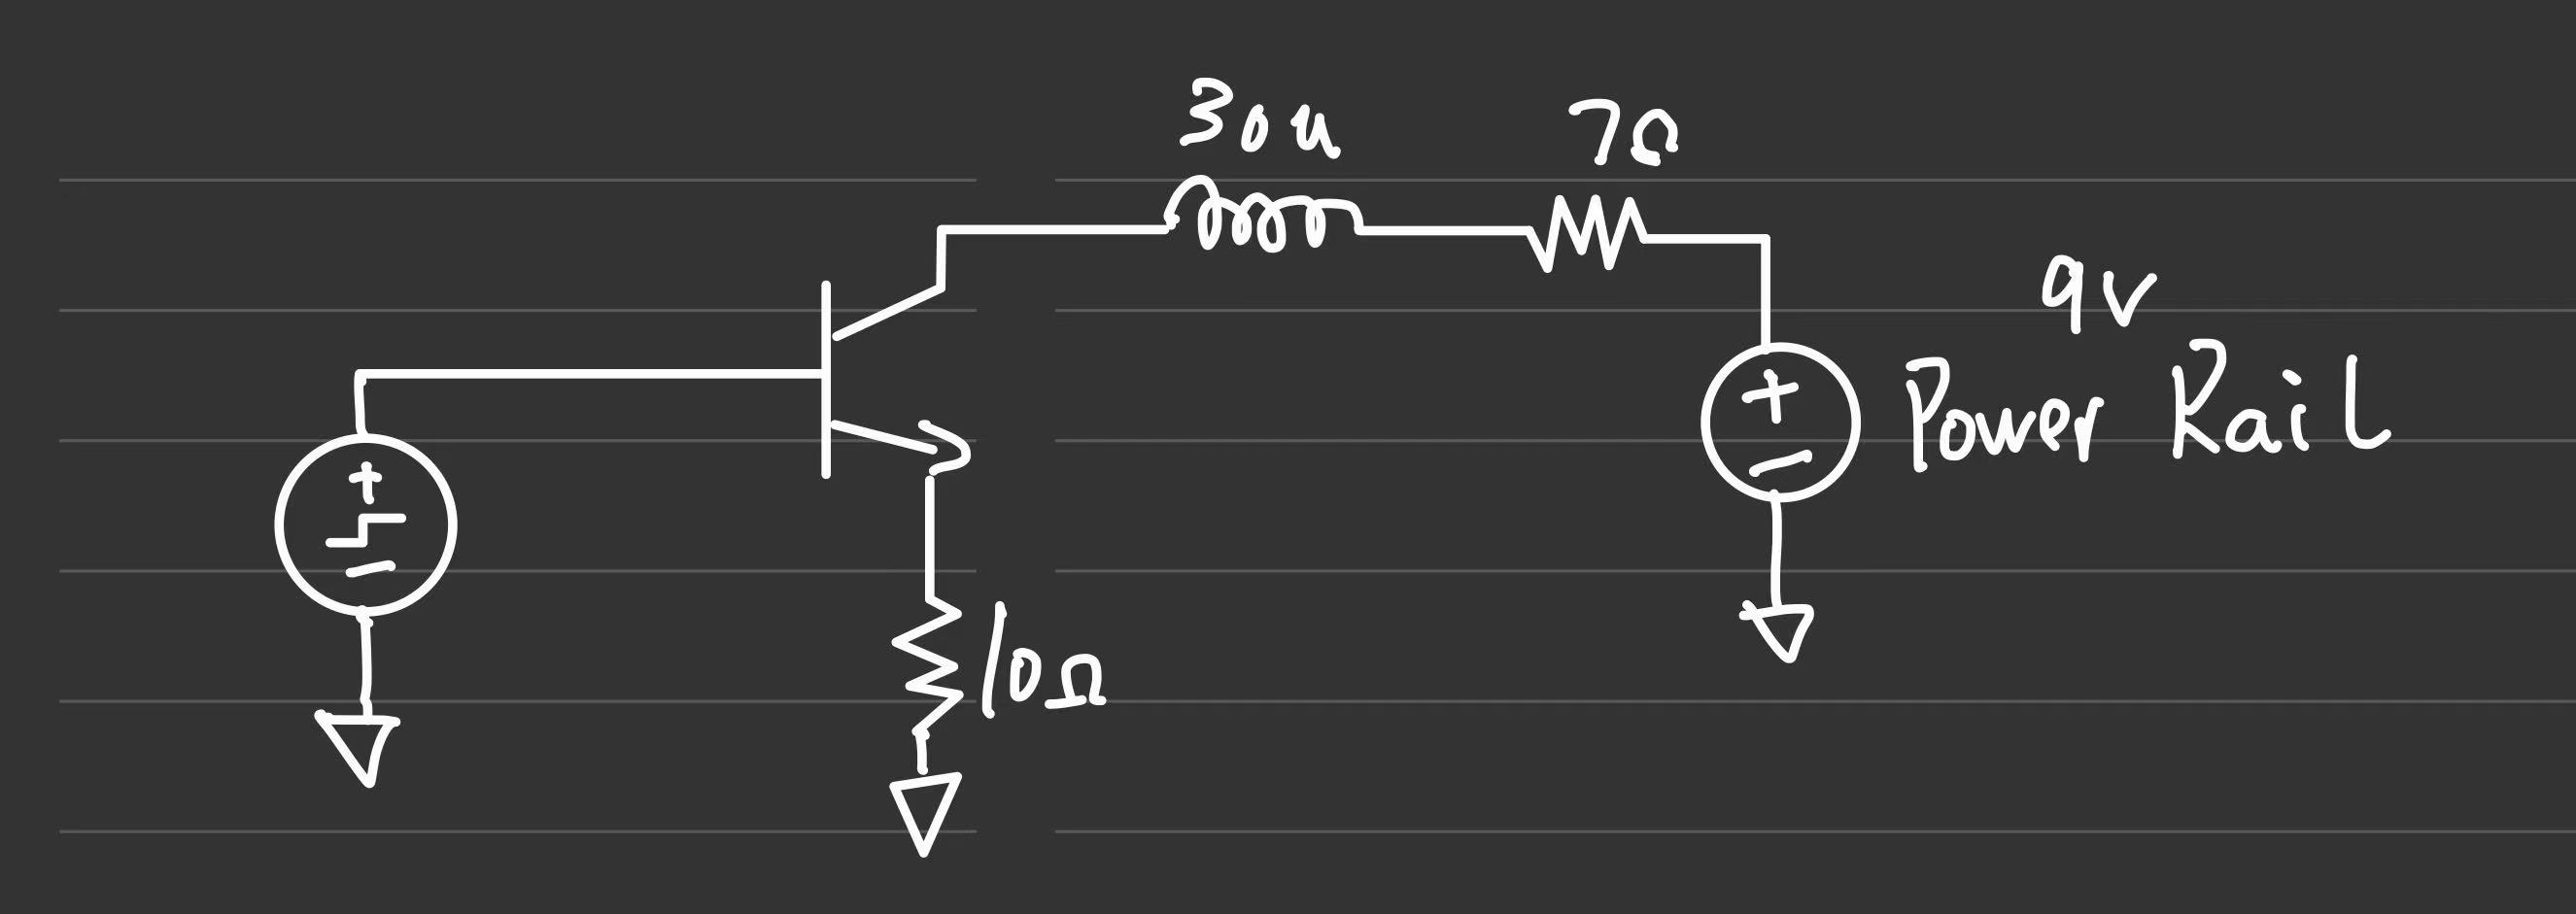 30u
7Ω
9V
Power Rail
+
-
+
-
10Ω